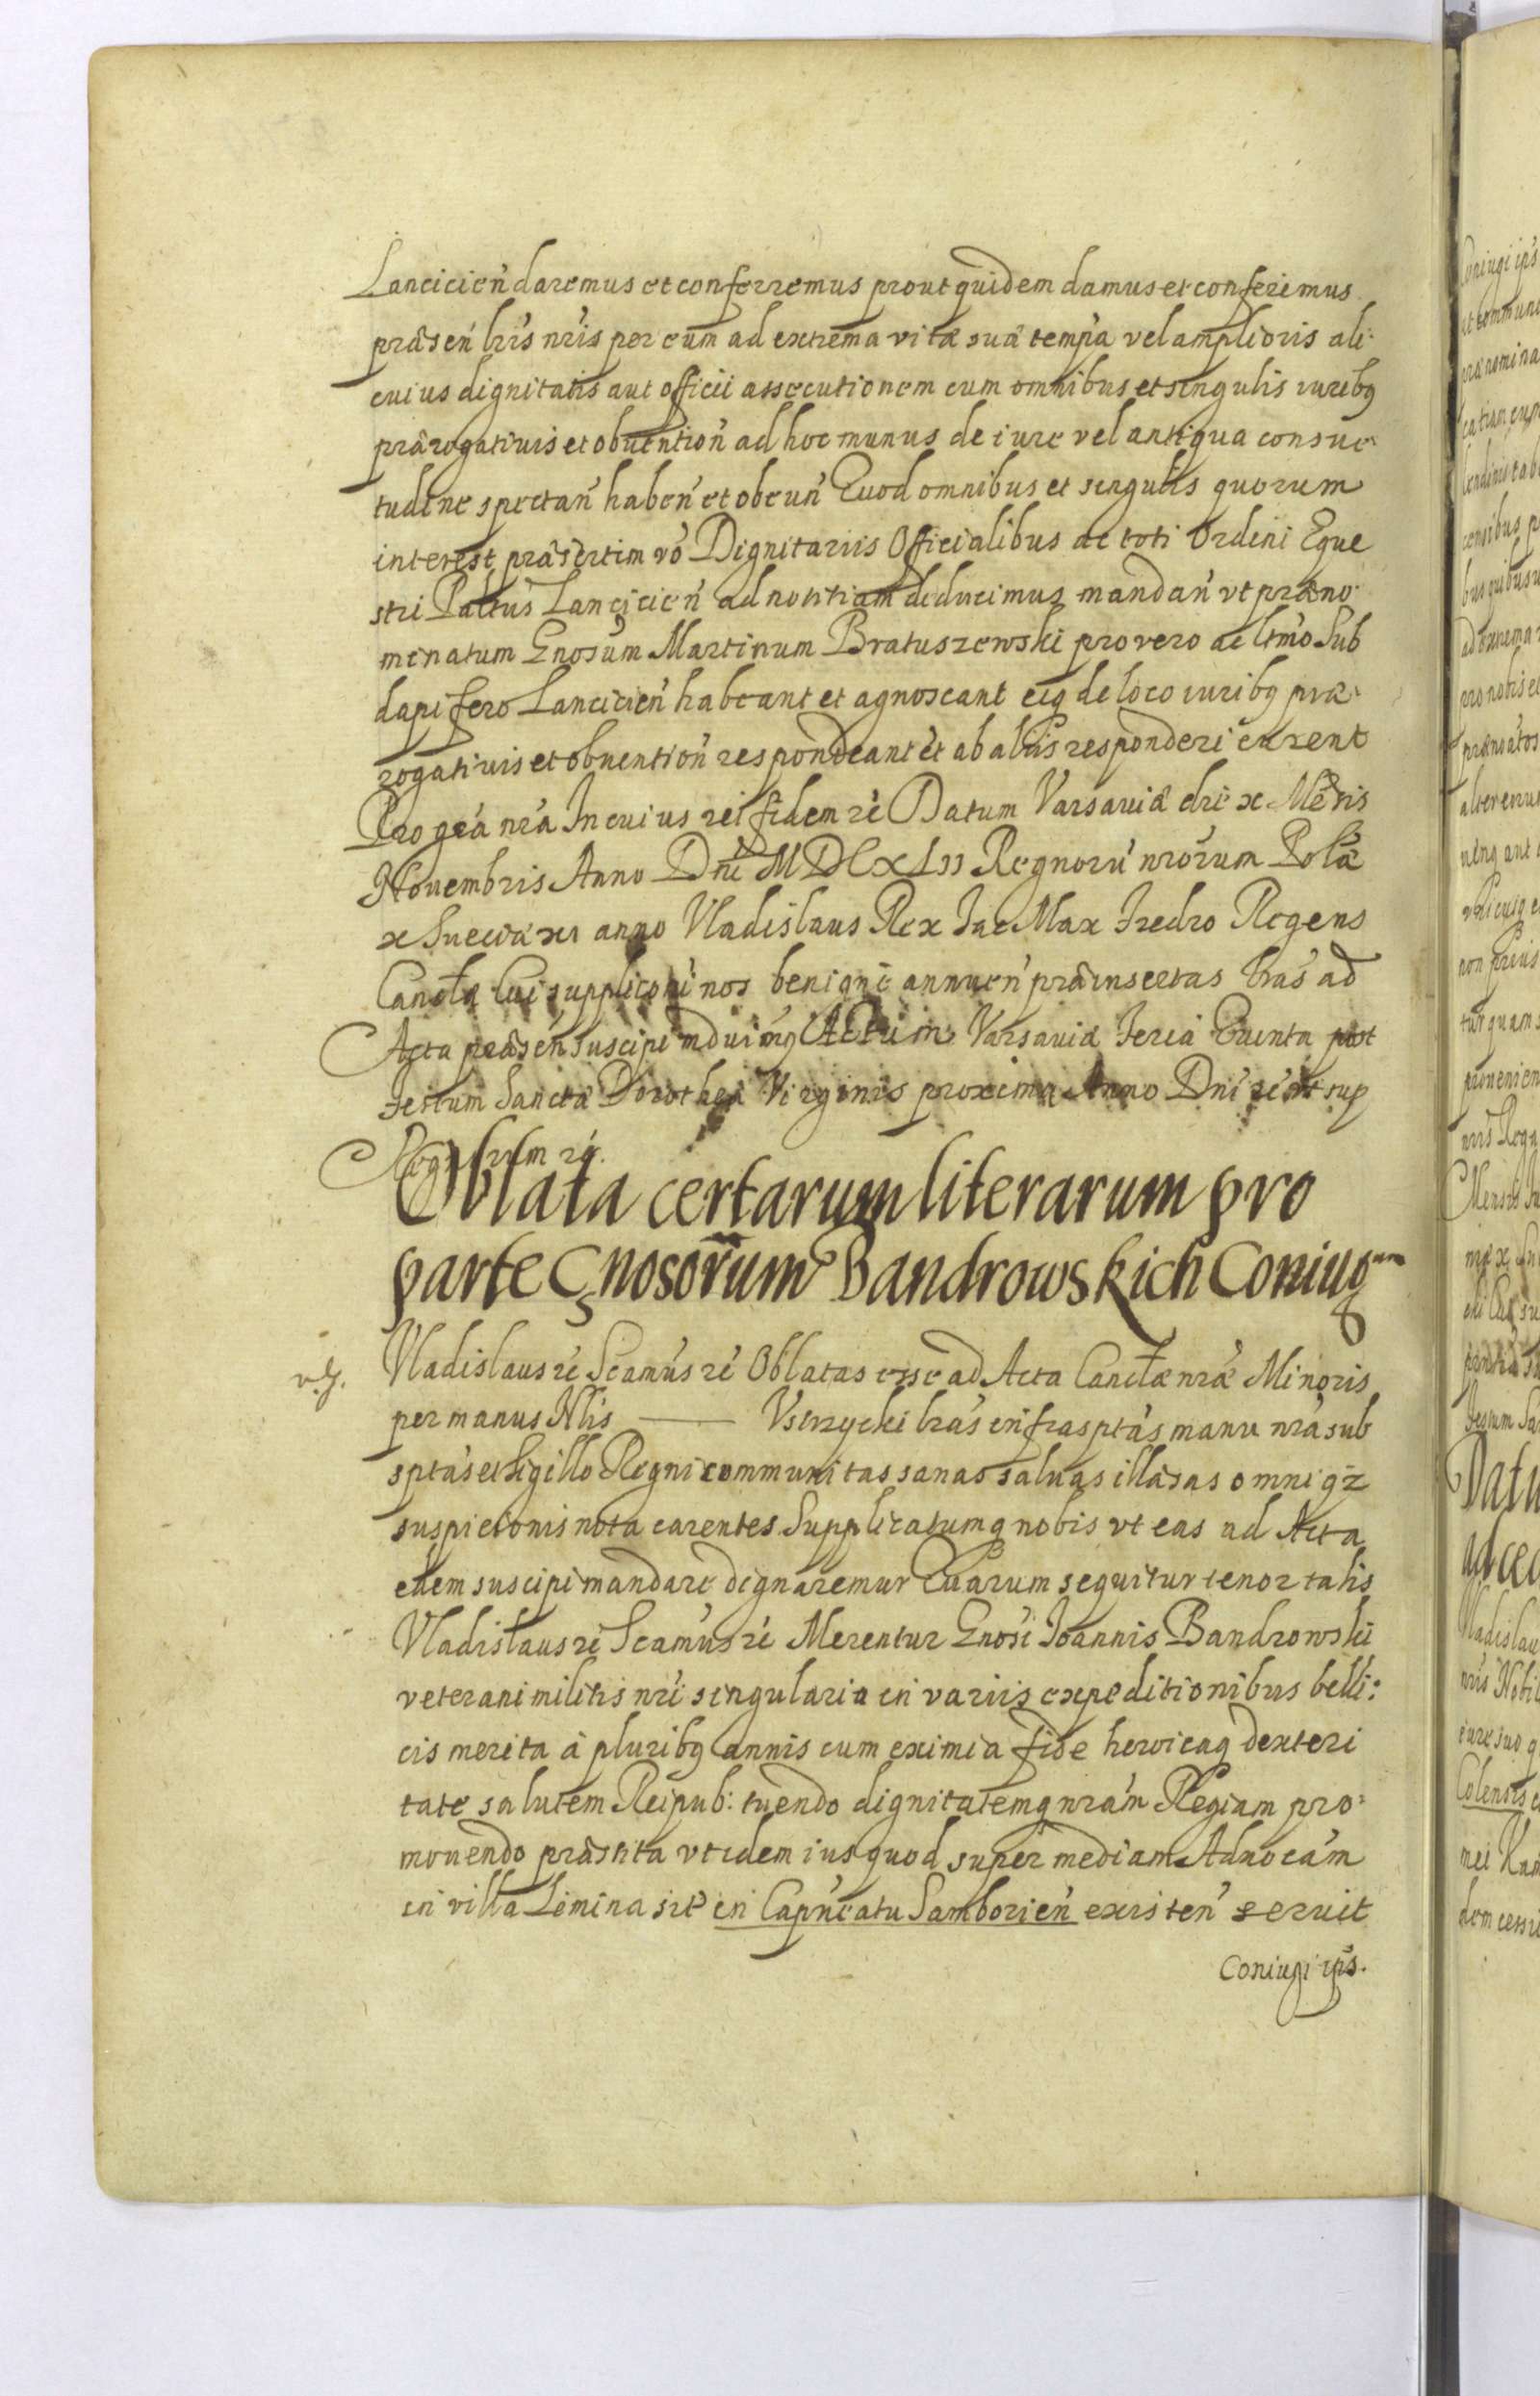 Lancicień daremus et conferremus prout quidem damus et conferimus
præseń lrīs nrīs per eum ad extrema vitæ suæ tempa vel amplioris ali:
cuius dignitatis aut officii assecutionem cum omnibus et singulis iuribq
prærogativis et obuention ad hoc munus de iure vel antiqua consue
tudine spectań habeń et obeuń Quod omnibus et singulis quorum
interest præsertim vō Dignitariis Officialibus ac toti Ordini Eque
stri Pallūs Lancicień ad notitiam deducimus mandań vt præno
minatum Gnosūm Martinum Bratuszewski pro vero ac ltmō Sub
dapifero Lancicień habeant et agnoscant eiq de loco iuribq præ
rogativis et obuention respondeant et ab aliis responderi curent
Pro grā nrā In cuius rei fidem rē Datum Varsaviæ die x Mēsis
Nouembris Anno Dnī MDCXLII Regnorū nrōrum Polæ
x Sueciæ xi anno Vladislaus Rex Jac Max Fredro Regens
Canclæ Cui supplicōni nos benignè annueń præinsertas lrās ad
Acta præseń suscipi manduimq Actum Varsaviæ Feria Quinta post
Festum Sanctæ Dorotheæ Virginis proxima Anno Dnī rē vt sup
Regnorum rē.
Oblata certarum literarum pro
parte Gnosorum Bandrowskich Coniugum
Vladislaus rē Scamūs rē Oblatas esse ad Acta Canclæ nræ Minoris
per manus Nlis —— Vstrzycki lrās infrasptās manu nrā sub
sptās et Sigillo Regni communitas sanas saluas illæsas omniq
suspicionis nota carentes Supplicatumq nobis vt eas ad Acta
eadem suscipi mandare dignaremur Quarum sequitur tenor talis
Vladislaus rē Scamūs rē Merentur Gnosi Joannis Bandrowski
veterani militis nrī singularia in variis expeditionibus belli:
cis merita à pluribq annis cum eximia fide heroicaq dexteri
tate salutem Reipub: tuendo dignitatemq nrām Regiam pro:
mouendo præstita vt idem ius quod super mediam Aduocām
in villa Limina sitē in Capneatu Samborień existeń seruit
Coniugi ips.